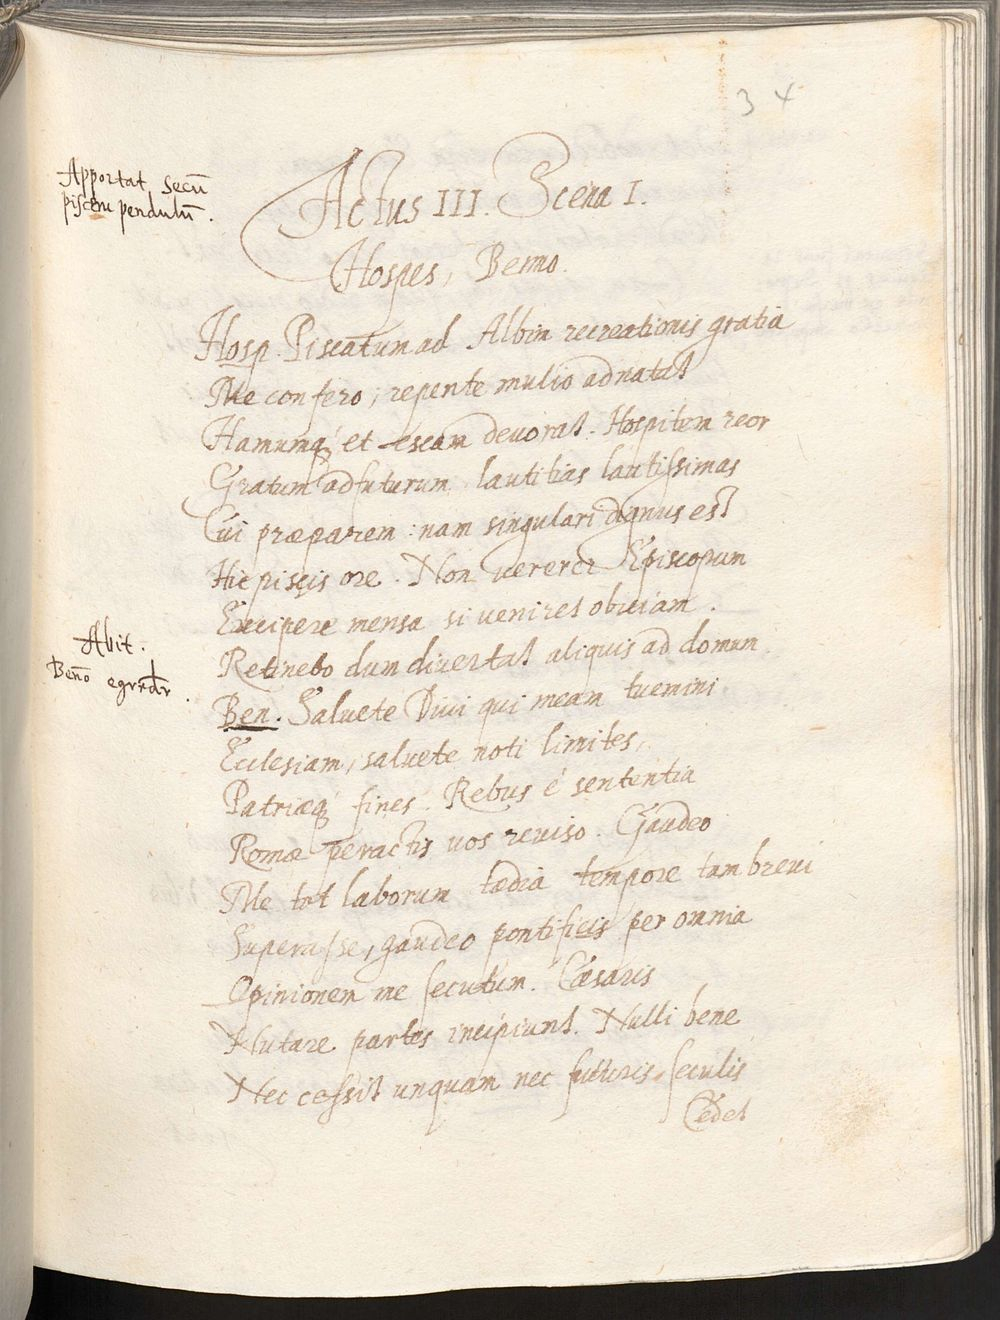 34
Apportat secū
piscem pendulū.
Actus III. Scena I.
Hospes, Benno.
Hosp. Piscatum ad Albim recreationis gratia
Me confero; repente mulio adnatat
Hamumq́ et escam devorat. Hospitem reor
Gratum adfuturum lautitias lautissimas
Cui præparem: nam singulari dignus est
Hic piscis ore. Non vererer Episcopum
Excipere mensa si veniret obviam.
Abit.
Retinebo dum divertat aliquis ad domum.
Beño egredr.
Ben. Salvete Divi qui meam tuemini
Ecclesiam, salvete noti limites,
Patriæq́ fines. Rebus é sententia
Romæ peractis vos reviso. Gaudeo
Me tot laborum tædia tempore tam brevi
Superasse, gaudeo pontificis per omnia
Opinionem me secutum. Cæsaris
Nutare partes incipiunt. Nulli bene
Nec cessit unquam nec futuris seculis
Cedet